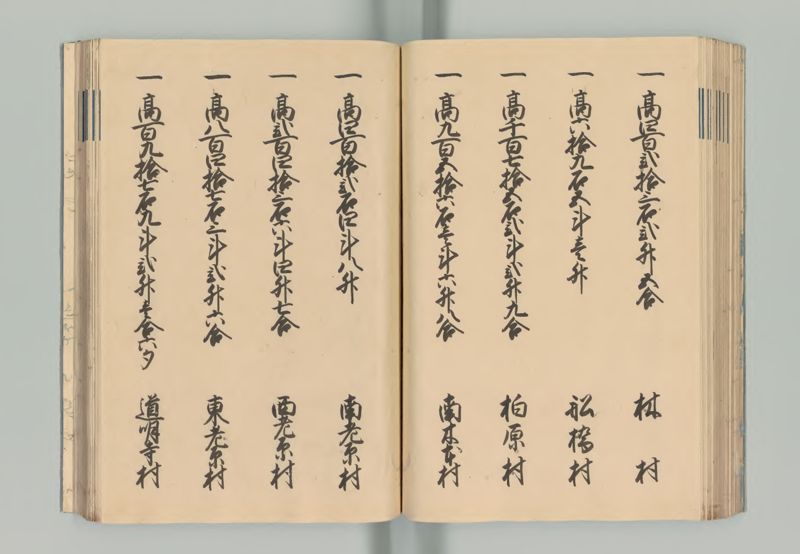 一高四百弐拾三石弐升五合 林村
一高六拾九石五斗壱升 舩橋村
一高千百七拾五石弐斗弐升九合 柏原村
一高九百五拾六石壱斗六升八合 南木本村
一高四百拾弐石四斗八升 南老原村
一高弐百四拾三石六斗四升七合 西老原村
一高八百四拾七石三斗弐升六合 東老原村
一高百九拾七石九斗弐升壱合六夕 道明寺村